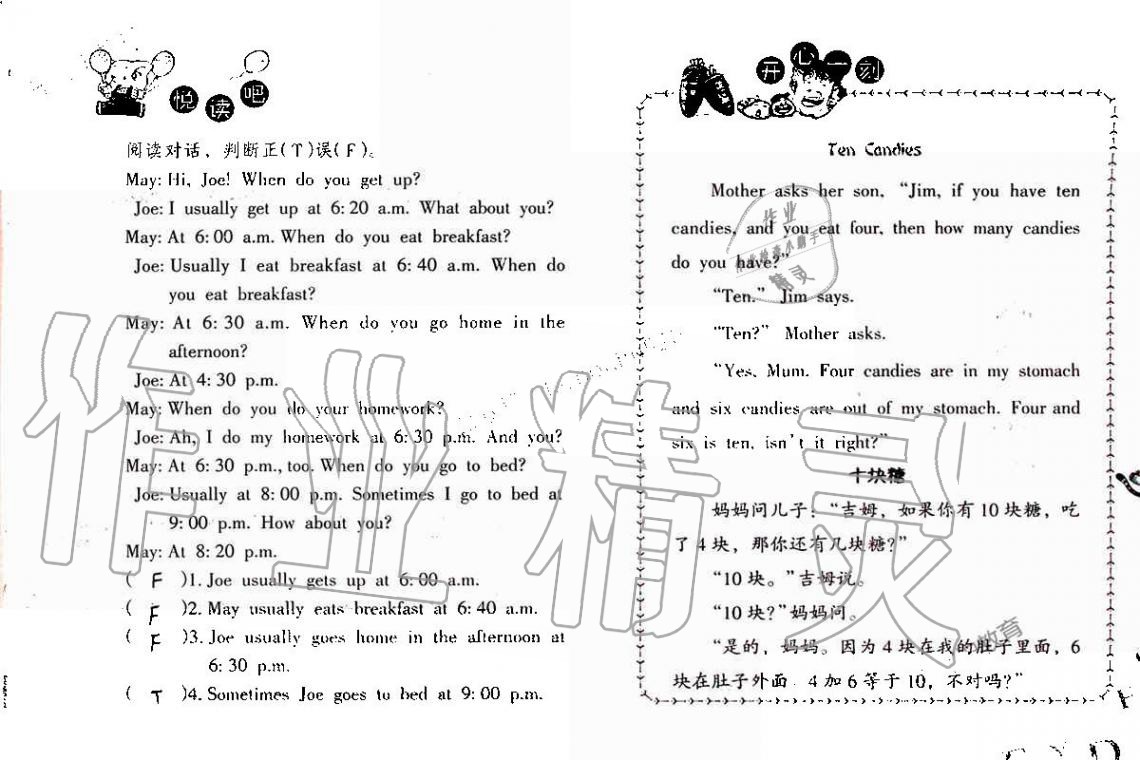 悦读吧
阅读对话，判断正(T)误(F)。
May: Hi, Joe! When do you get up?
Joe: I usually get up at 6:20 a.m. What about you?
May: At 6:00 a.m. When do you eat breakfast?
Joe: Usually I eat breakfast at 6:40 a.m. When do
you eat breakfast?
May: At 6:30 a.m. When do you go home in the
afternoon?
Joe: At 4:30 p.m.
May: When do you do your homework?
Joe: Ah, I do my homework at 6:30 p.m. And you?
May: At 6:30 p.m., too. When do you go to bed?
Joe: Usually at 8:00 p.m. Sometimes I go to bed at
9:00 p.m. How about you?
May: At 8:20 p.m.
( F )1. Joe usually gets up at 6:00 a.m.
( F )2. May usually eats breakfast at 6:40 a.m.
( F )3. Joe usually goes home in the afternoon at
6:30 p.m.
( T )4. Sometimes Joe goes to bed at 9:00 p.m.
开心一刻
Ten Candies
Mother asks her son, "Jim, if you have ten
candies, and you eat four, then how many candies
do you have?"
"Ten." Jim says.
"Ten?" Mother asks.
"Yes, Mum. Four candies are in my stomach
and six candies are out of my stomach. Four and
six is ten, isn't it right?"
十块糖
妈妈问儿子：“吉姆，如果你有10块糖，吃
了4块，那你还有几块糖？”
“10块。”吉姆说。
“10块？”妈妈问。
“是的，妈妈。因为4块在我的肚子里面，6
块在肚子外面 4加6等于10，不对吗？”
作业精灵
作业
精灵
教育